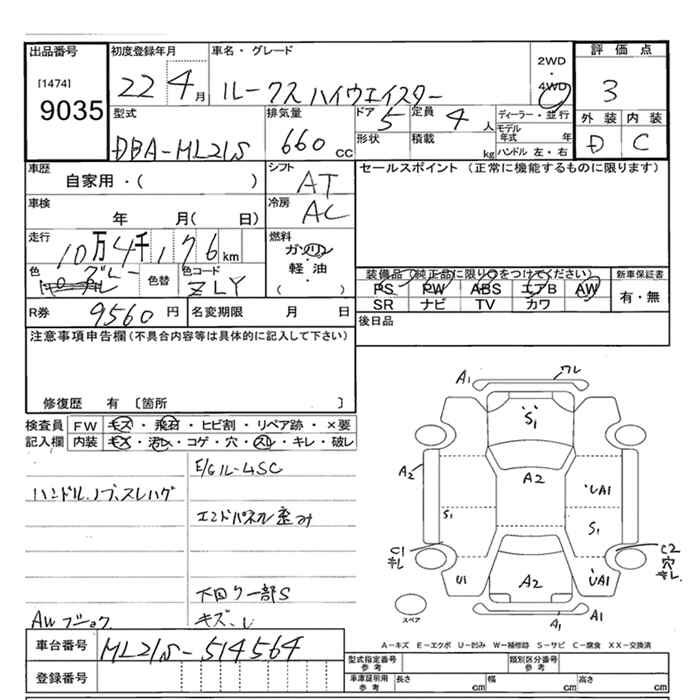 出品番号 初度登録年月 車名・グレード 2WD ・ 4WD 評価点
[1474] 9035 22 4月 ルークス ハイウエイスター 3
型式 排気量 ドア 定員 ディーラー・並行 外装 内装
DBA-ML21S 660cc 5 4人 モデル年式 年 D C
形状 積載 kg ハンドル 左・右
車歴 シフト セールスポイント (正常に機能するものに限ります)
自家用・( ) AT
車検 冷房
年 月( 日) AC
走行 燃料
10万4千176km ガソリン
色 色替 色コード 軽・油 装備品 (純正品に限り○をつけてください) 新車保証書
グレー ZLY ( ) PS PW ABS エアB AW 有・無
SR ナビ TV カワ
R券 9560円 名変期限 月 日 後日品
注意事項申告欄(不具合内容等は具体的に記入して下さい)
修復歴 有 〔箇所 〕
検査員 FW キズ・飛石・ヒビ割・リペア跡・×要
記入欄 内装 キズ・汚レ・コゲ・穴・スレ・キレ・破レ
E/Gルーム SC
ハンドル、ノブ、スレハゲ
エンドパネル歪み
下回り一部S
キズ、U
AW
A1 ワレ
S1
A2 A2 UA1
S1 S1
C1 キレ C2 穴 キレ
U1 A2 UA1
スペア A1 A1
車台番号 ML21S-514564
A-キズ E-エクボ U-凹み W-補修跡 S-サビ C-腐食 XX-交換済
登録番号 型式指定番号 参考 類別区分番号 参考
車庫証明用 参考 長さ cm 幅 cm 高さ cm